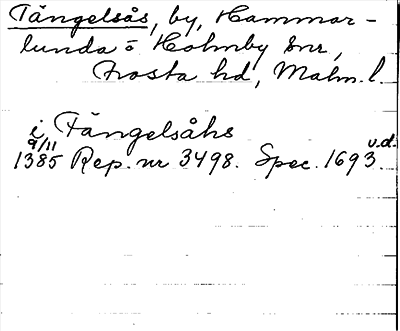 Tängelsås, by, Hammar-
lunda o Holmby snr,
Frosta hd, Malm. l.
i Tängelsåhs
9/11 u.d.
1385 Rep. nr 3498. Spec. 1693.